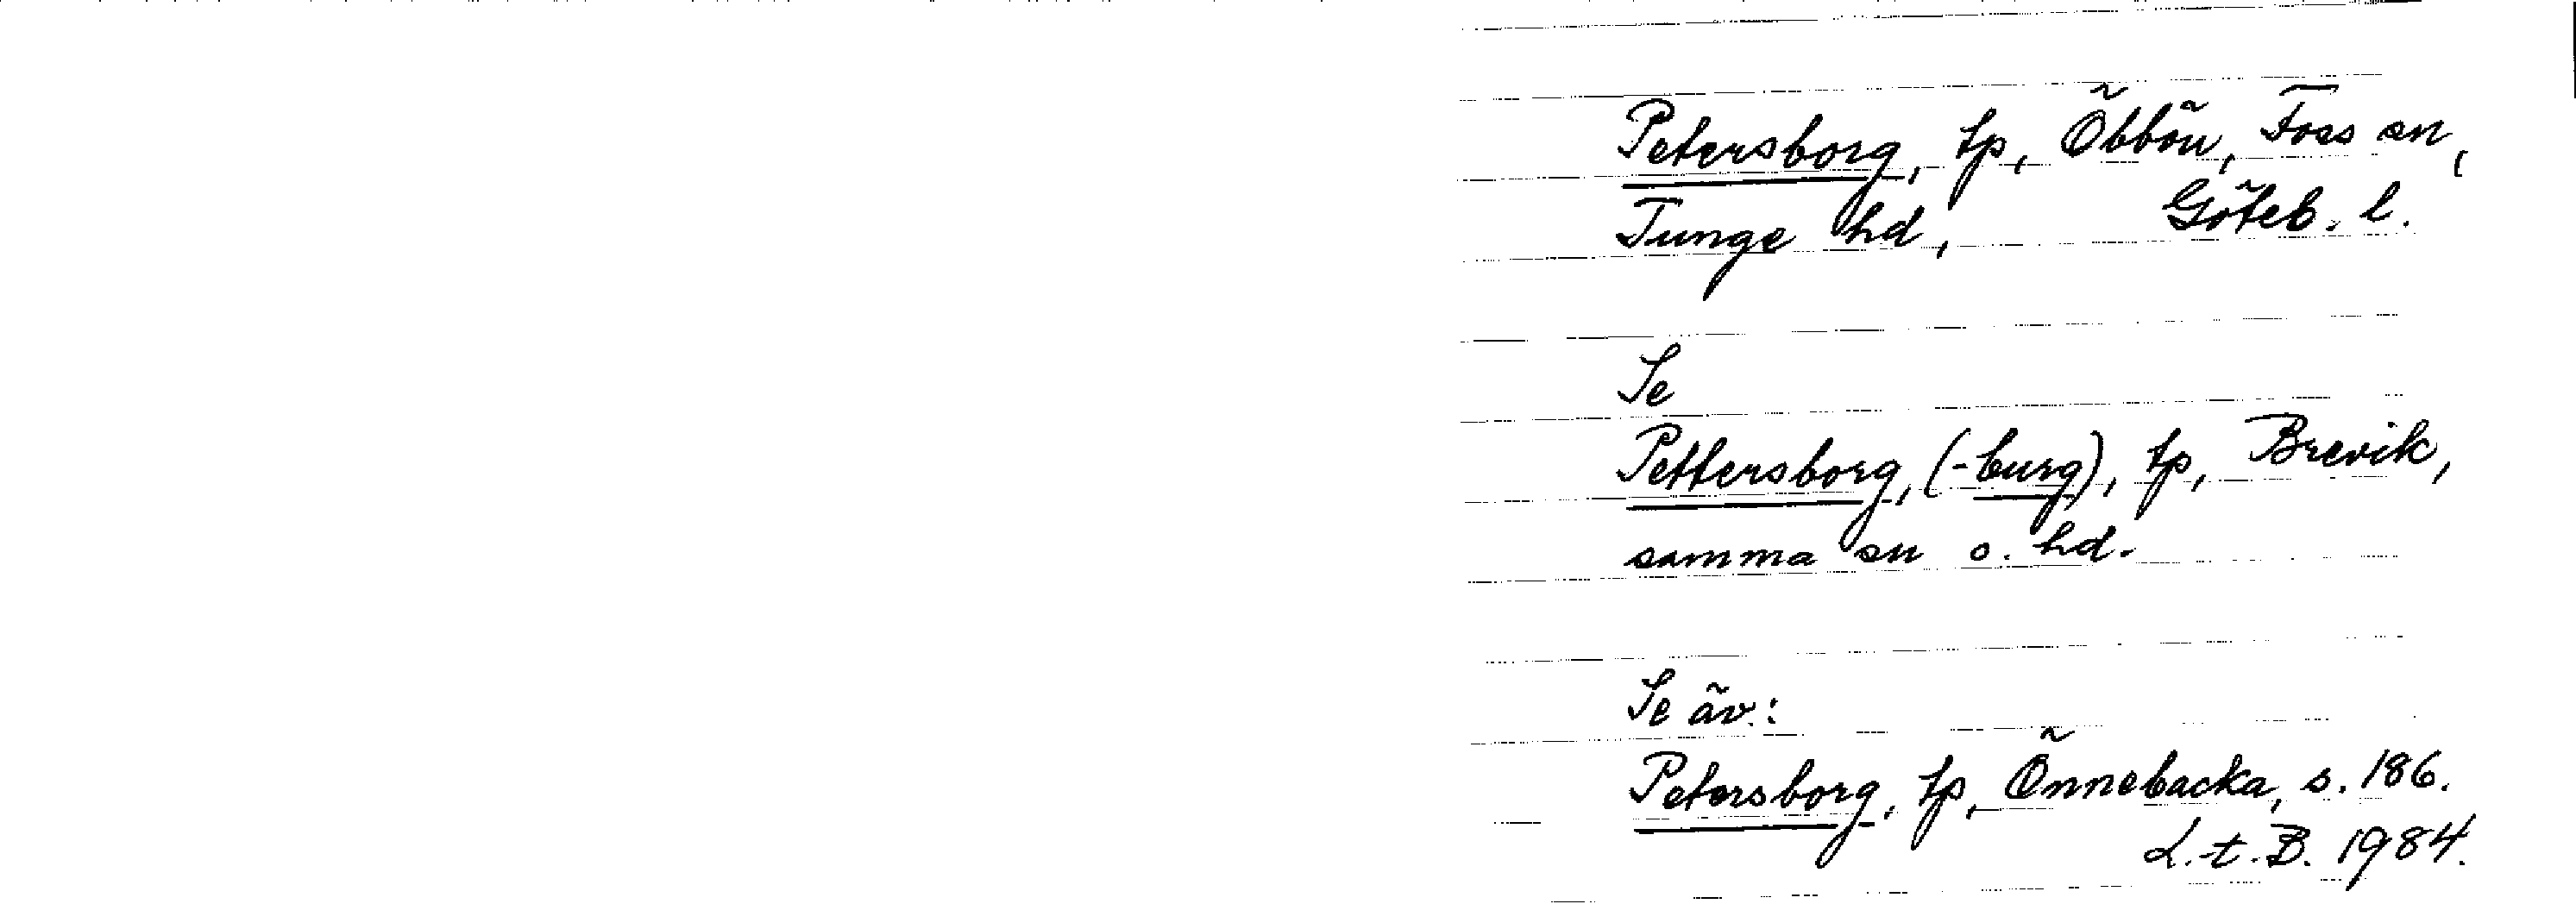 Petersborg, tp, Öbbön, Foss sn,
Tunge hd, Göteb. l.
Se
Pettersborg, (-burg), tp, Brevik,
samma sn o. hd.
Se äv.:
Petersborg, tp, Önnebacka, s. 186.
L.t.B. 1984.